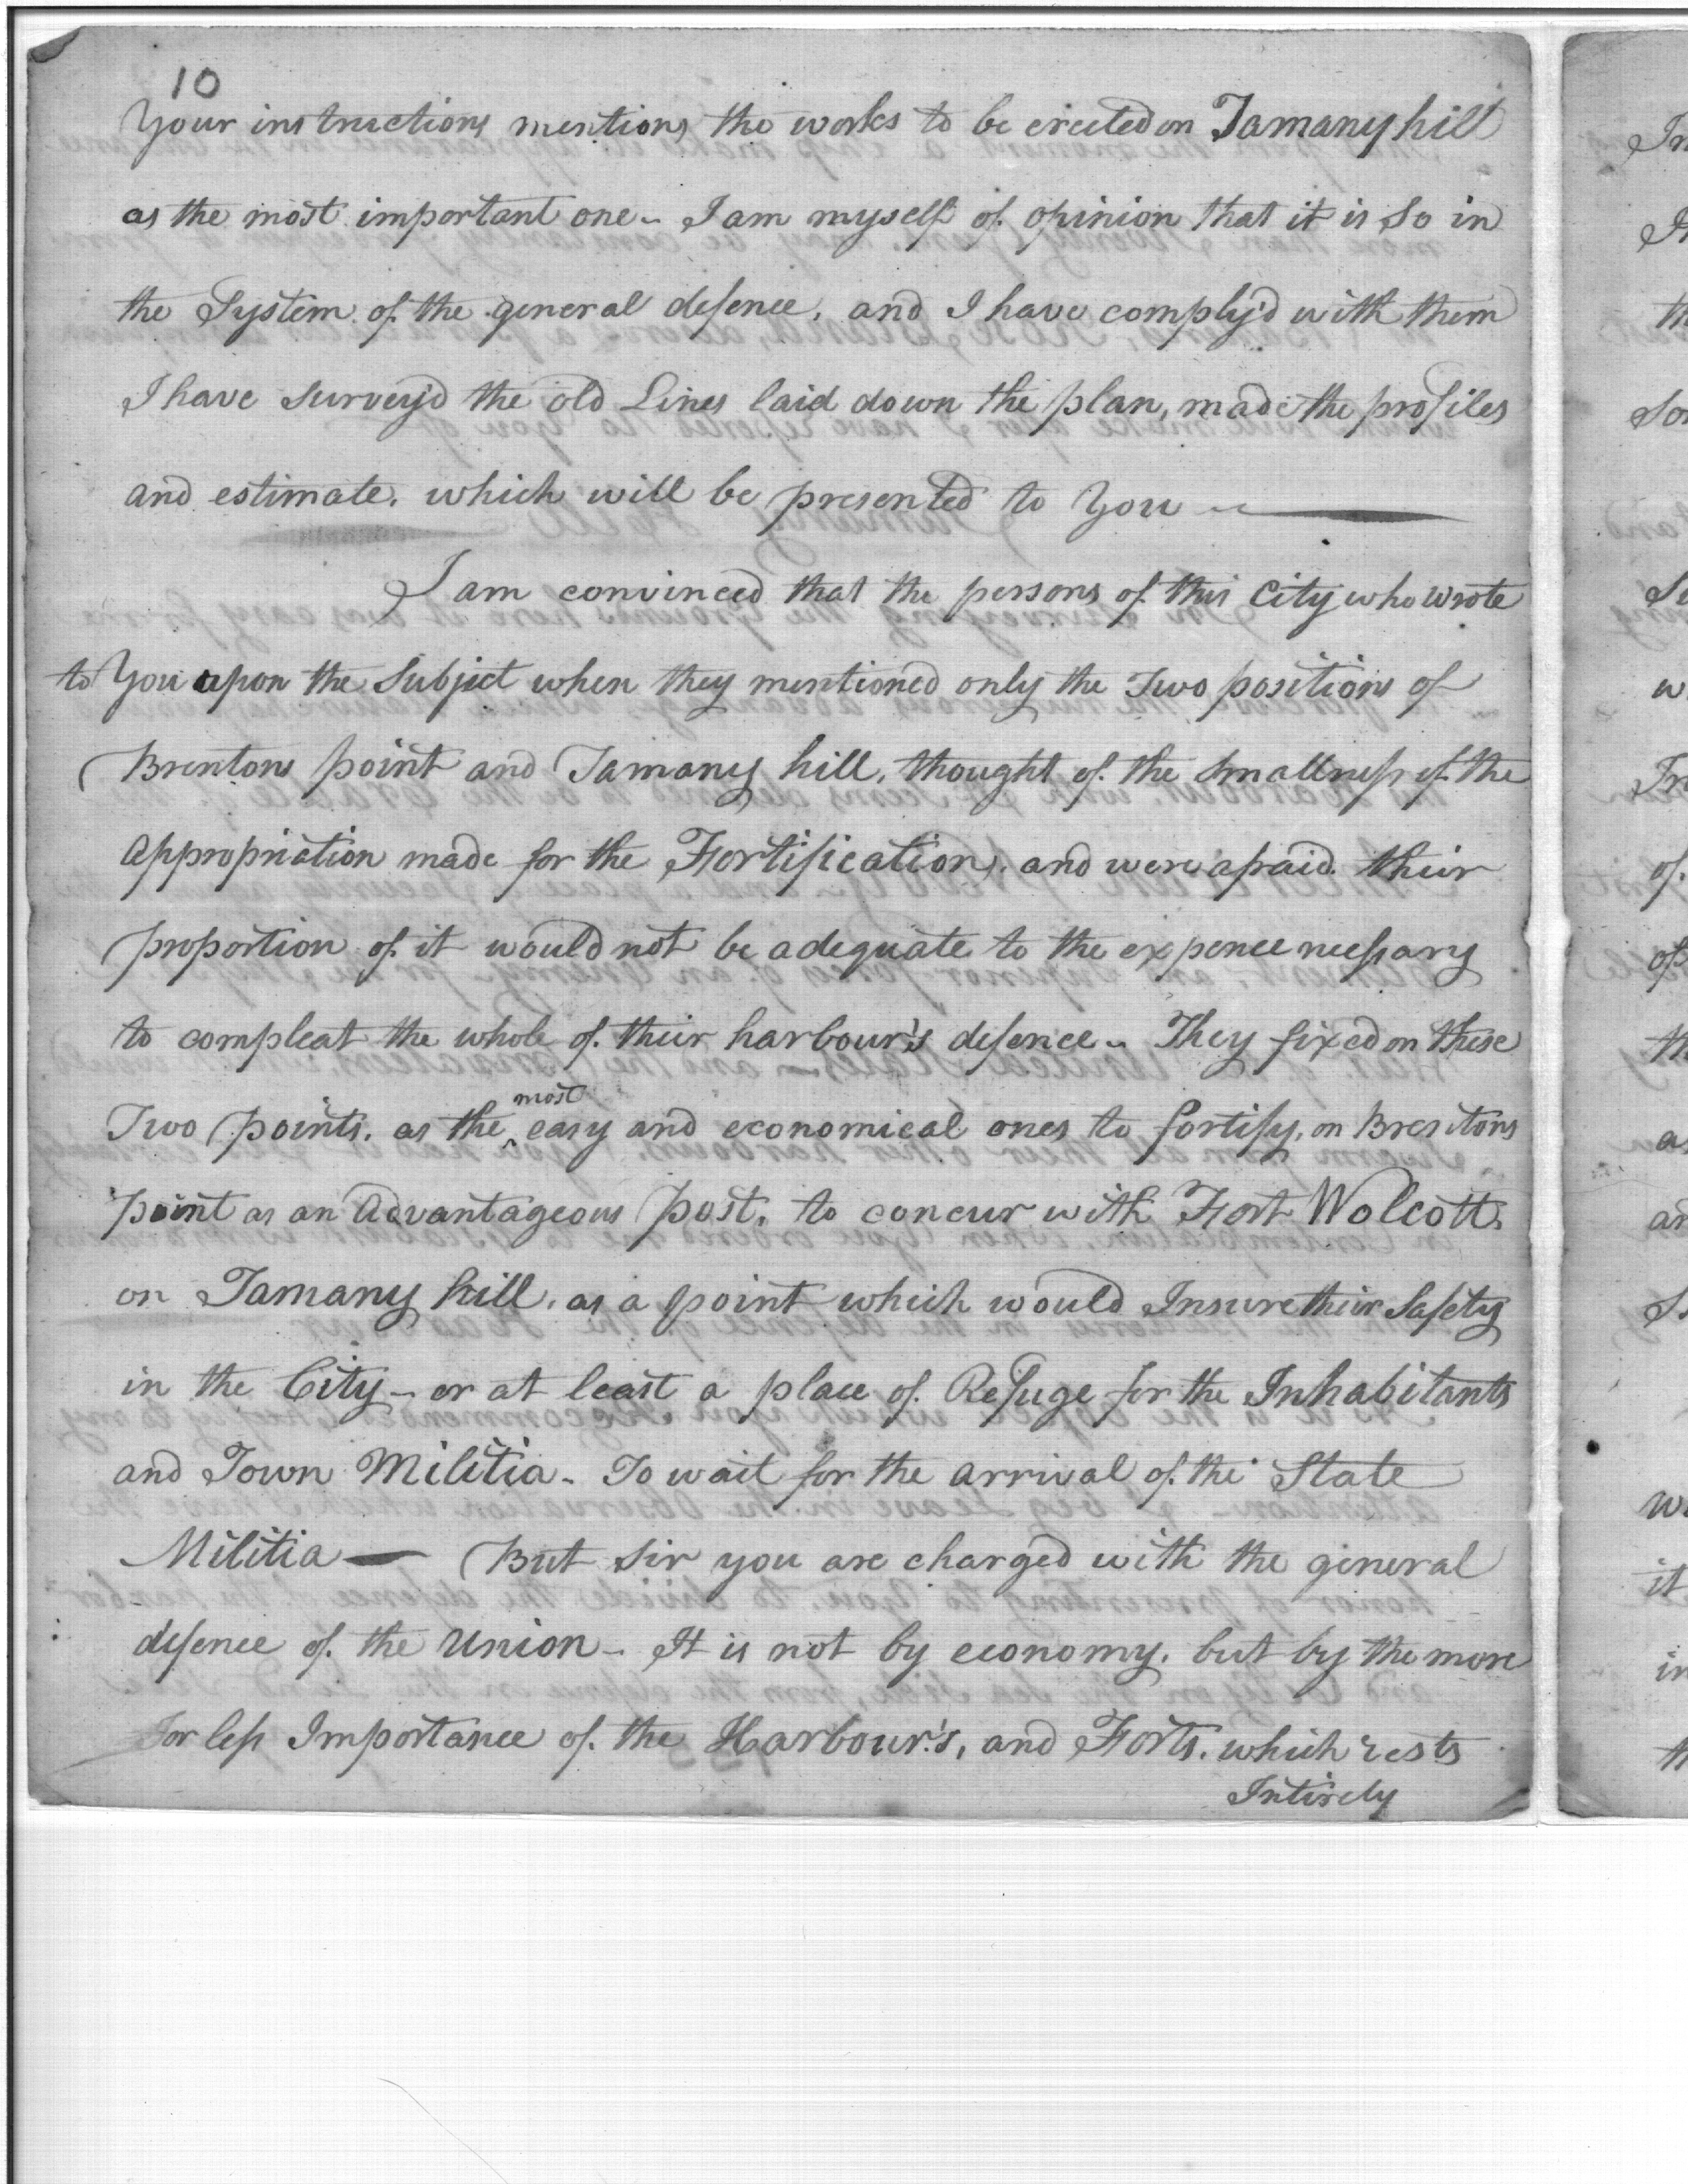 10
Your instructions mentions the works to be erected on Tamany hill
as the most important one - I am myself of opinion that it is so in
the System of the general defence, and I have comply'd with them
I have survey'd the old Lines laid down the plan, made the profiles
and estimate, which will be presented to You -
I am convinced that the persons of this City who wrote
to You upon the Subject when they mentioned only the Two positions of
Brentons point and Tamany hill, thought of the smallness of the
Appropriation made for the Fortifications. and were afraid their
proportion of it would not be adequate to the expence necessary
to compleat the whole of their harbour's defence - They fixed on these
Two points, as the most easy and economical ones to fortify, on Brentons
Point as an Advantageous post, to concur with Fort Wolcott,
on Tamany hill, as a point which would Insure their Safety
in the City - or at least a place of Refuge for the Inhabitants
and Town Militia - To wait for the arrival of the State
Militia — But Sir you are charged with the general
defence of the Union - It is not by economy, but by the more
or less Importance of the Harbour's, and Forts, which rests
Intirely
In
th
w
In
of.
th
it
in